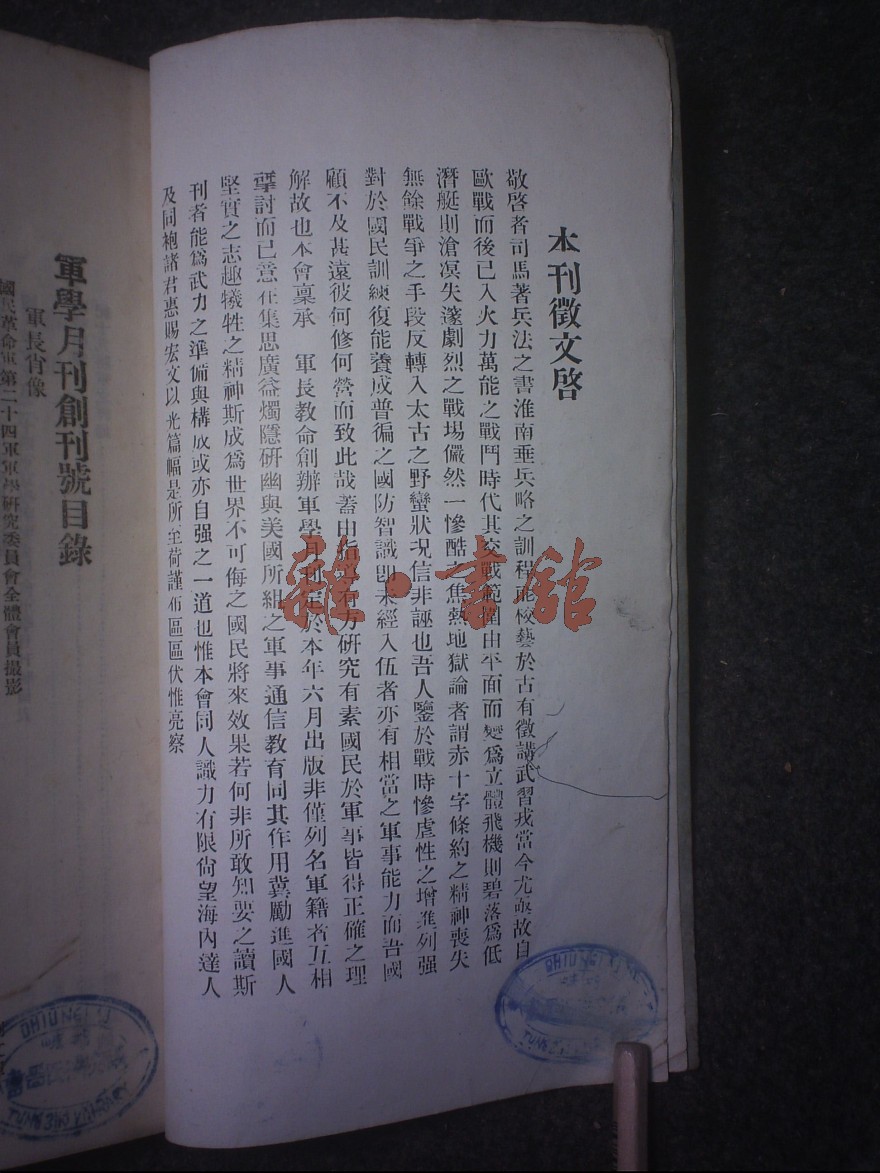 本刊徵文啓
敬啓者司馬著兵法之書淮南垂兵略之訓程能校藝於古有徵講武習戎當今尤亟故自
歐戰而後已入火力萬能之戰鬥時代其交戰範圍由平面而變爲立體飛機則碧落爲低
潛艇則滄溟失邃劇烈之戰場儼然一慘酷之焦熱地獄論者謂赤十字條約之精神喪失
無餘戰爭之手段反轉入太古之野蠻狀况信非誣也吾人鑒於戰時慘虐性之增進列强
對於國民訓練復能養成普徧之國防智識卽未經入伍者亦有相當之軍事能力而吾國
顧不及甚遠彼何修何營而致此哉蓋由指導有方研究有素國民於軍事皆得正確之理
解故也本會稟承　軍長教命創辦軍學月刊定於本年六月出版非僅列名軍籍者互相
摯討而已意在集思廣益燭隱研幽與美國所組之軍事通信教育同其作用冀勵進國人
堅實之志趣犧牲之精神斯成爲世界不可侮之國民將來效果若何非所敢知要之讀斯
刊者能爲武力之準備與構成或亦自强之一道也惟本會同人識力有限尙望海內達人
及同袍諸君惠賜宏文以光篇幅是所至荷謹布區區伏惟亮察
軍學月刊創刊號目錄
軍長肖像
國民革命軍第二十四軍軍學研究委員會全體會員撮影
雜·書館